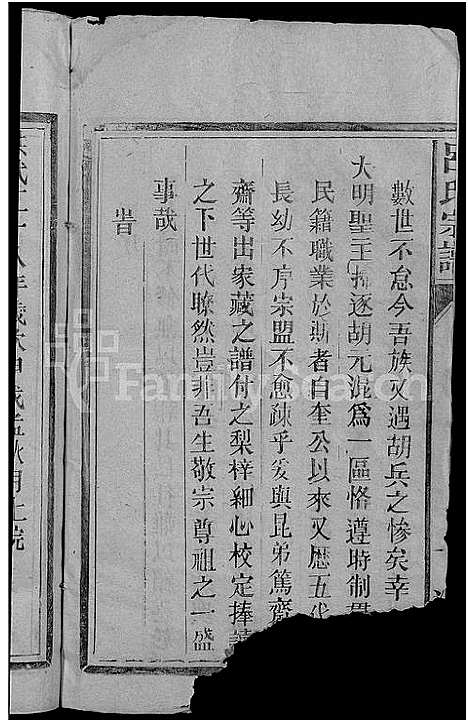 呂氏宗譜
數世不怠今吾族又遇胡兵之慘矣幸
大明聖王掃逐胡元混爲一區恪遵時制貫
民籍職業於斯者自奎公以來又歷五代
長幼不序宗盟不愈疎乎爰與昆弟篤齋
齋等出家藏之譜付之梨梓細心校定捧讀
之下世代瞭然豈非吾生敬宗尊祖之一盛
事哉
旹
洪武二十八年歲次甲戌孟秋月上浣
FamilySearch